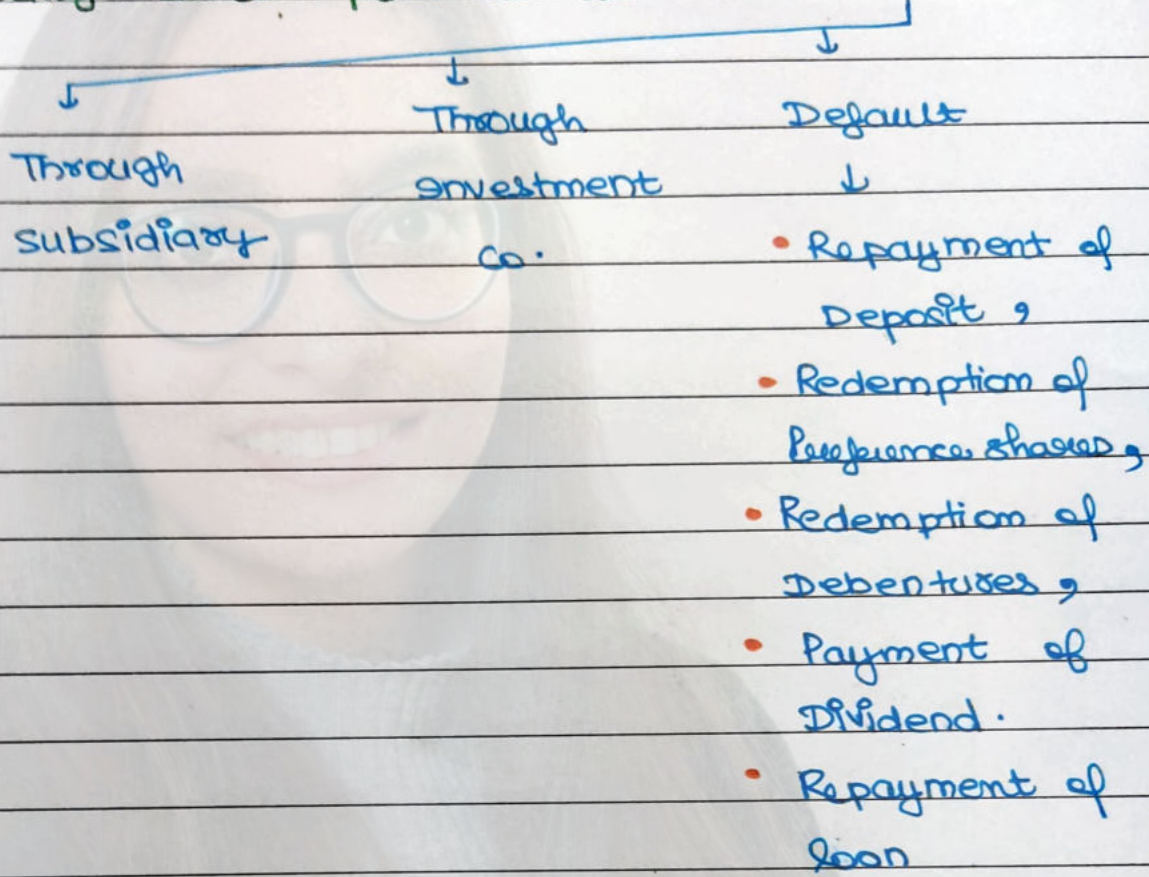 Through
subsidiary
Through
investment
Co.
Default
• Repayment of
Deposit,
• Redemption of
Preference shares,
• Redemption of
Debentures,
• Payment of
Dividend.
• Repayment of
loan